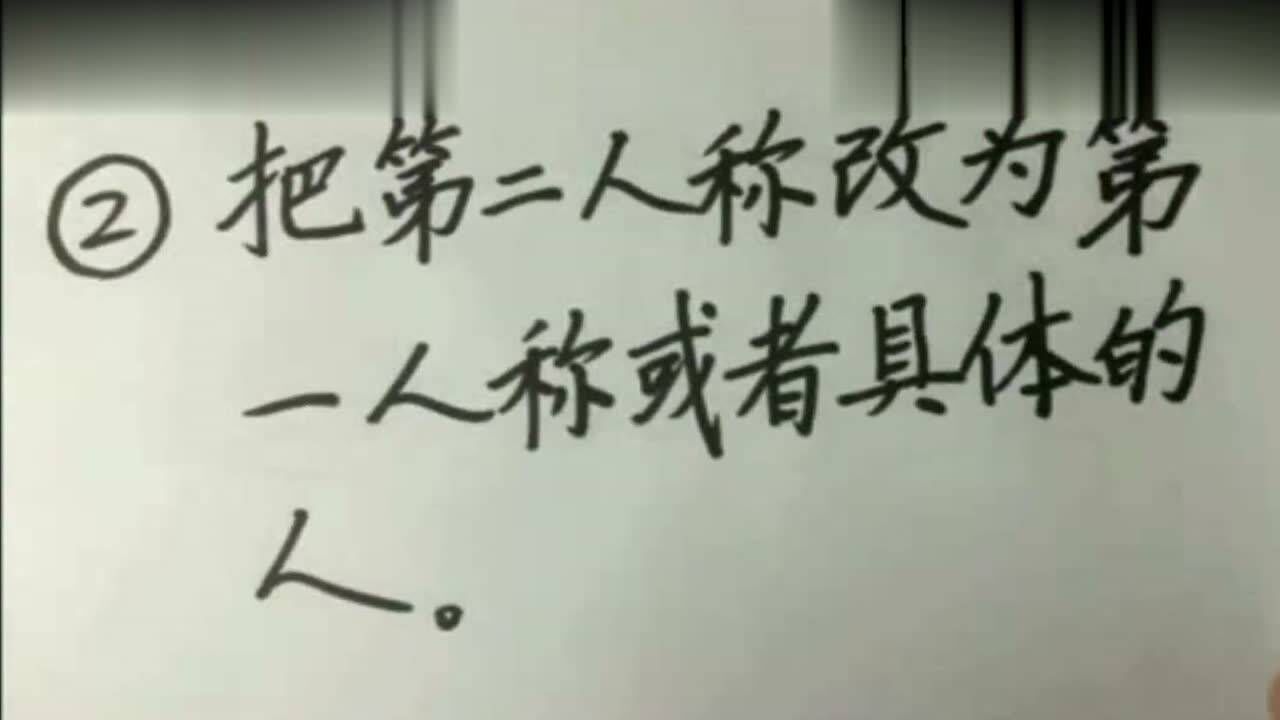 ② 把第二人称改为第
一人称或者具体的
人。